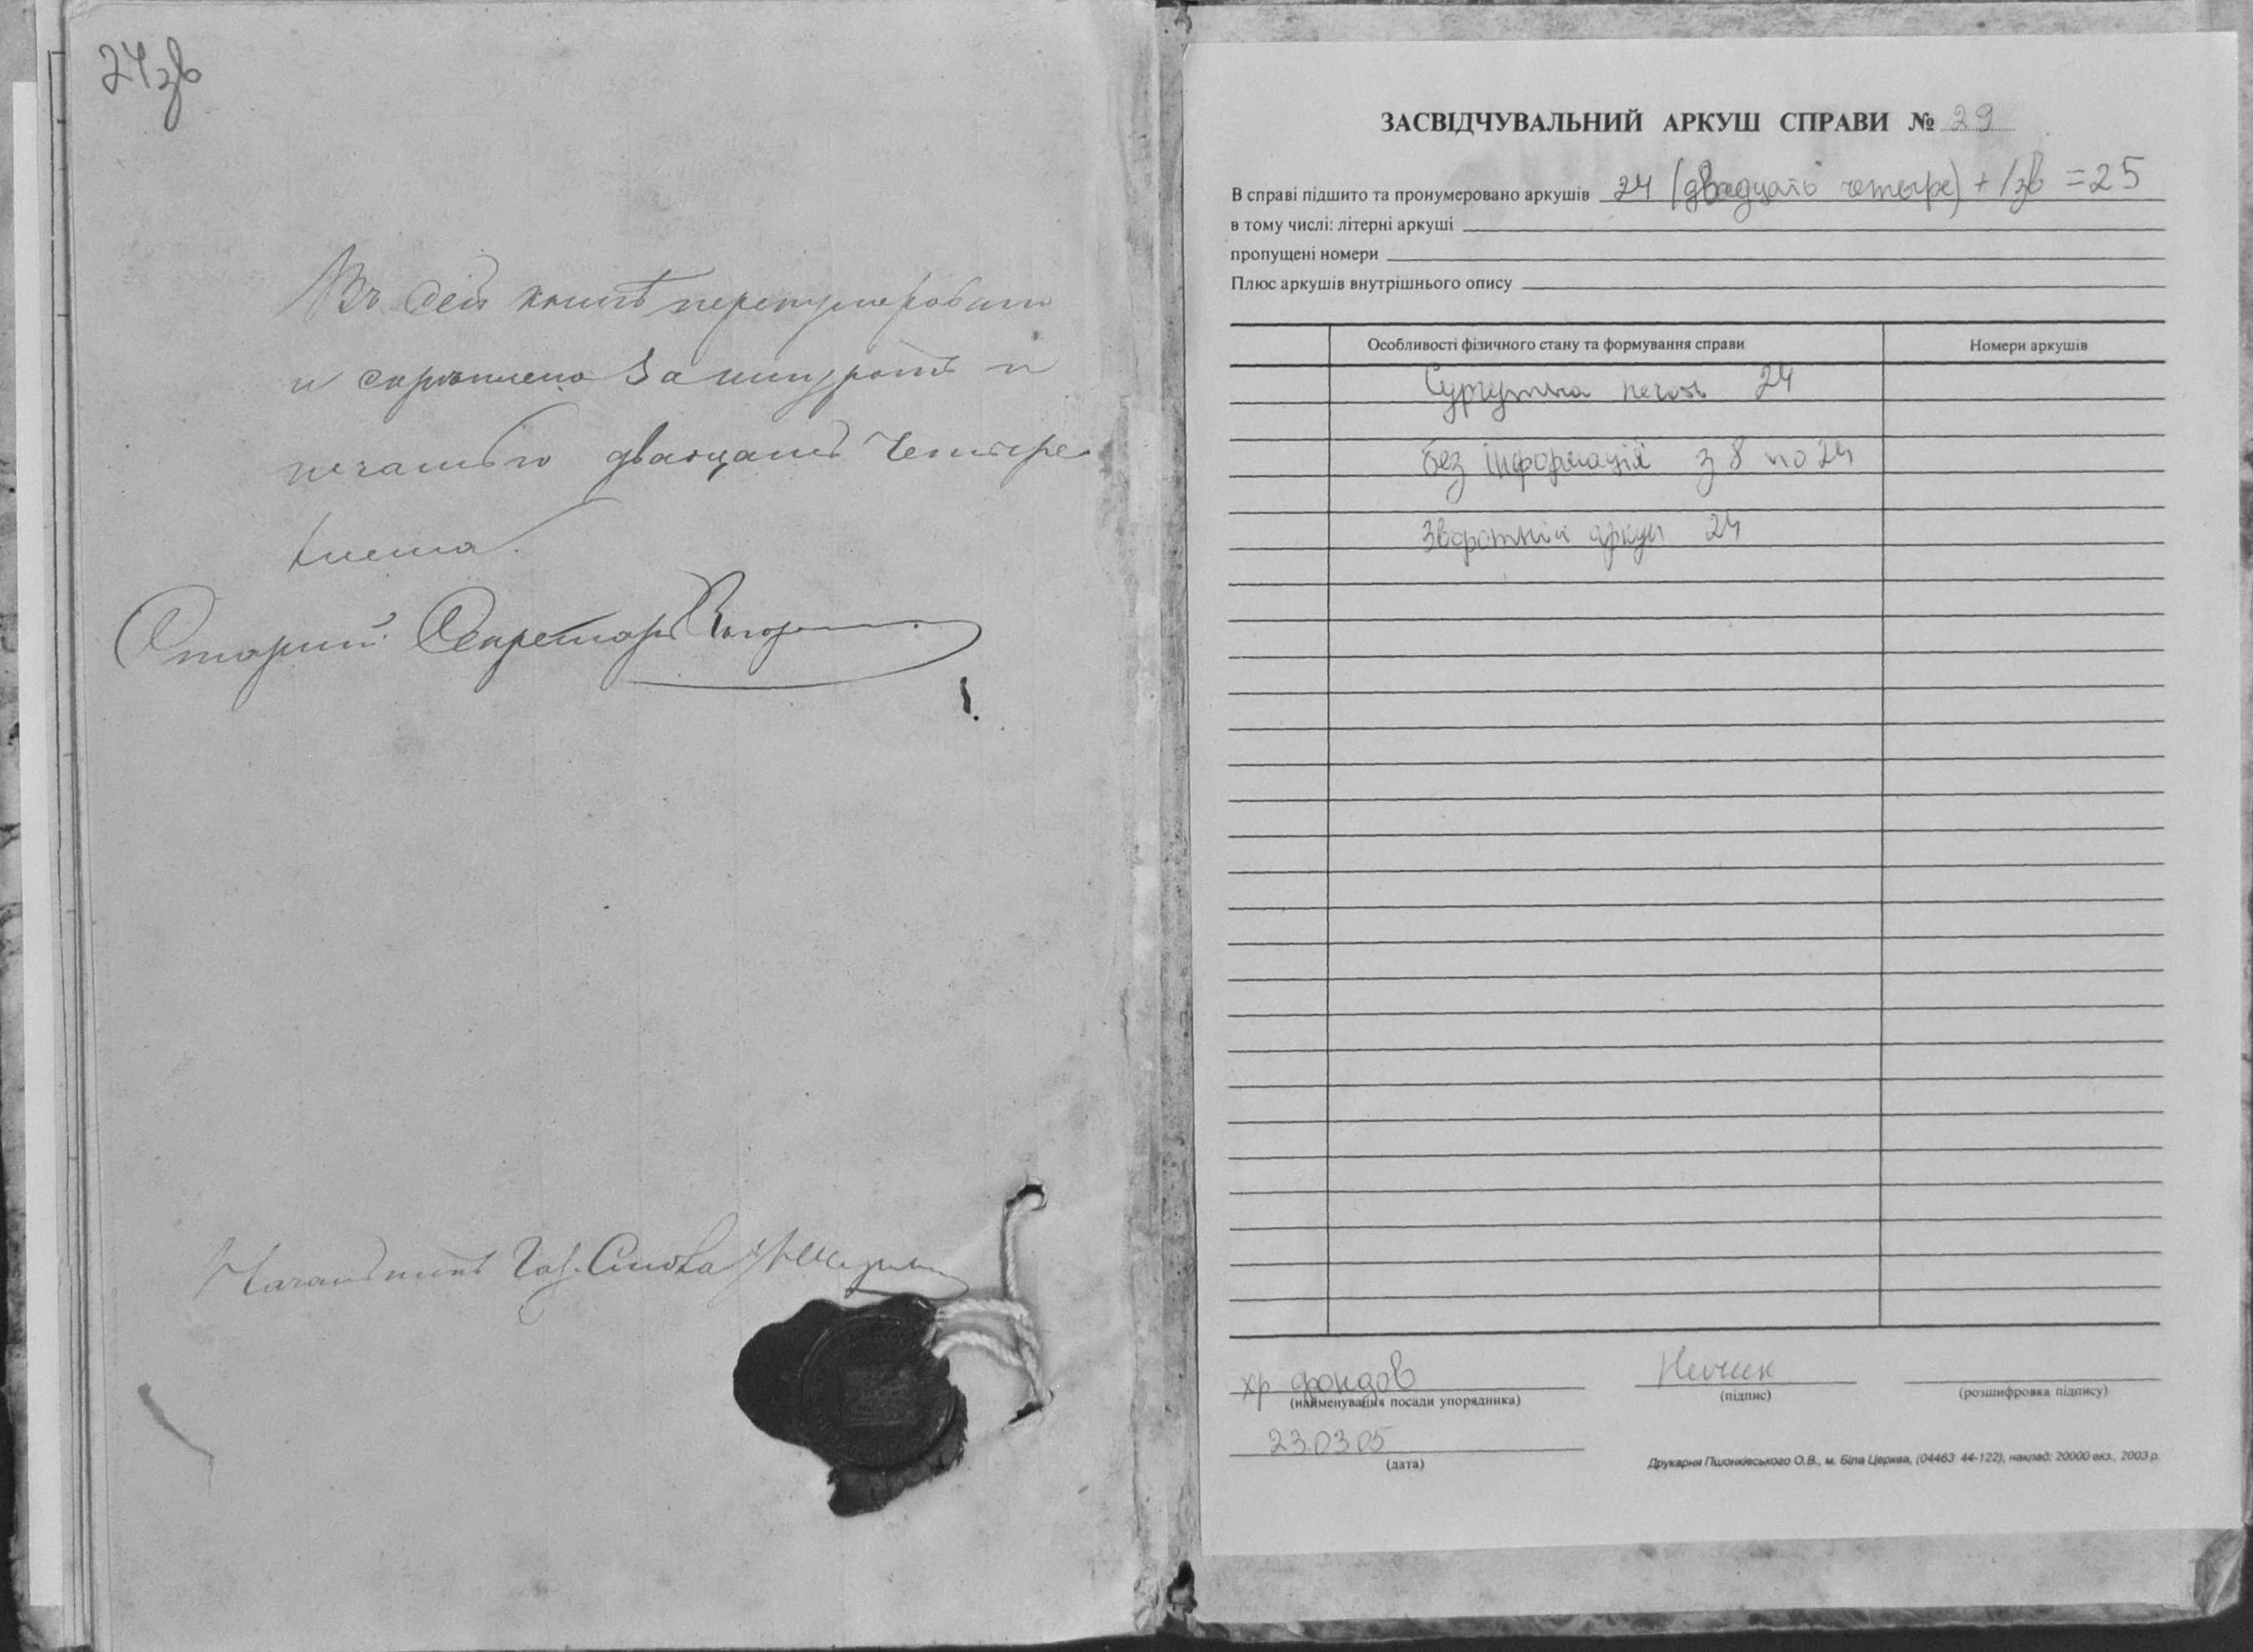 24зв
Въ сей книгѣ перенумеровано
и скрѣплено за шнуромъ и
печатью двадцать четыре
листа.
Старший Секретарь
Начальникъ Газ. Стола
ЗАСВІДЧУВАЛЬНИЙ АРКУШ СПРАВИ № 29
В справі підшито та пронумеровано аркушів 24 (двадцать четыре) + 1зв = 25
в тому числі: літерні аркуші
пропущені номери
Плюс аркушів внутрішнього опису
Особливості фізичного стану та формування справи Номери аркушів
Сургучна печать 24
без інформацій з 8 по 24
Зворотній аркуш 24
хр фондов
(найменування посади упорядника) (підпис) (розшифровка підпису)
23.03.05
(дата)
Друкарня Пшонківського О.В., м. Біла Церква, (04463 44-122), наклад: 20000 екз., 2003 р.